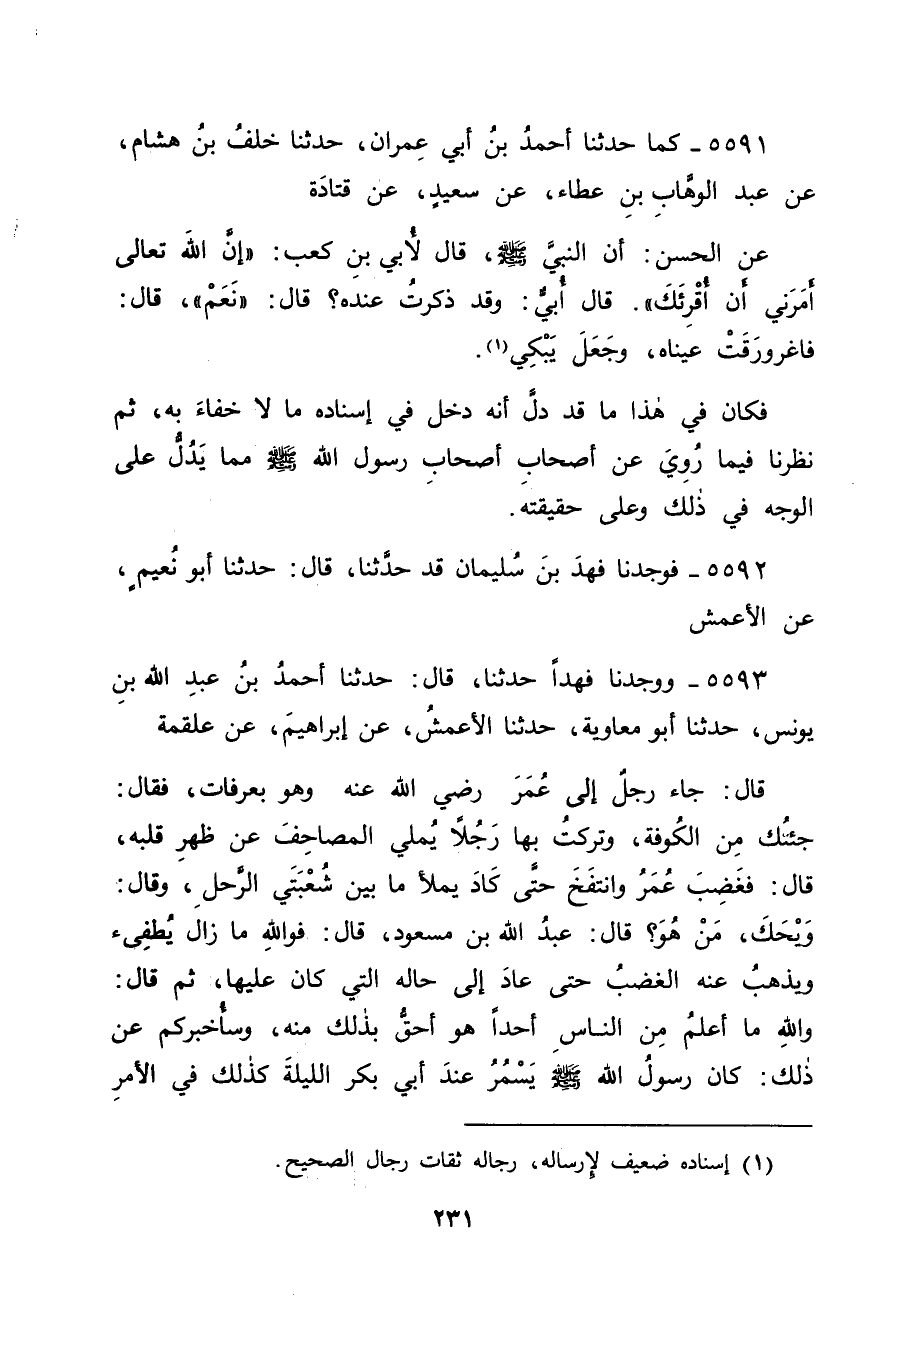 ٥٥٩١ ـ كما حدثنا أحمدُ بنُ أبي عِمران، حدثنا خلفُ بنُ هشام،
عن عبد الوهَّابِ بنِ عطاء، عن سعيدٍ، عن قتادَة
عن الحسن: أن النبيَّ ﷺ، قال لُأبي بنِ كعب: «إنَّ اللهَ تعالى
أَمَرَني أَن أُقْرِئَكَ». قال أُبيٌّ: وقد ذكرتُ عنده؟ قال: «نَعَمْ»، قال:
فاغرورَقَتْ عيناه، وجَعَلَ يَبْكِي(١).
فكان في هٰذا ما قد دلَّ أنه دخل في إسناده ما لا خفاءَ به، ثم
نظرنا فيما رُوِيَ عن أصحابِ أصحابِ رسول الله ﷺ مما يَدُلُّ على
الوجه في ذٰلك وعلى حقيقته.
٥٥٩٢ ـ فوجدنا فهدَ بنَ سُليمان قد حدَّثنا، قال: حدثنا أبو نُعيمٍ،
عن الأعمش
٥٥٩٣ ـ ووجدنا فهداً حدثنا، قال: حدثنا أحمدُ بنُ عبدِ الله بنِ
يونس، حدثنا أبو معاوية، حدثنا الأعمشُ، عن إبراهيمَ، عن علقمة
قال: جاء رجلٌ إلى عُمَرَ رضي الله عنه وهو بعرفات، فقال:
جئتُك مِن الكُوفة، وتركتُ بها رَجُلًا يُملي المصاحِفَ عن ظهرِ قلبه،
قال: فغَضِبَ عُمَرُ وانتفَخَ حتَّى كَادَ يملأ ما بين شُعْبَتَي الرَّحلِ، وقال:
وَيْحَكَ، مَنْ هُوَ؟ قال: عبدُ الله بن مسعود، قال: فواللهِ ما زال يُطفِىء
ويذهبُ عنه الغضبُ حتى عادَ إلى حاله التي كان عليها، ثم قال:
واللهِ ما أعلمُ مِن الناسِ أحداً هو أحقُّ بذٰلك منه، وسأُخبركم عن
ذٰلك: كان رسولُ الله ﷺ يَسْمُرُ عندَ أبي بكر الليلةَ كذٰلك في الأمرِ
(١) إسناده ضعيف لإِرساله، رجاله ثقات رجال الصحيح.
٢٣١